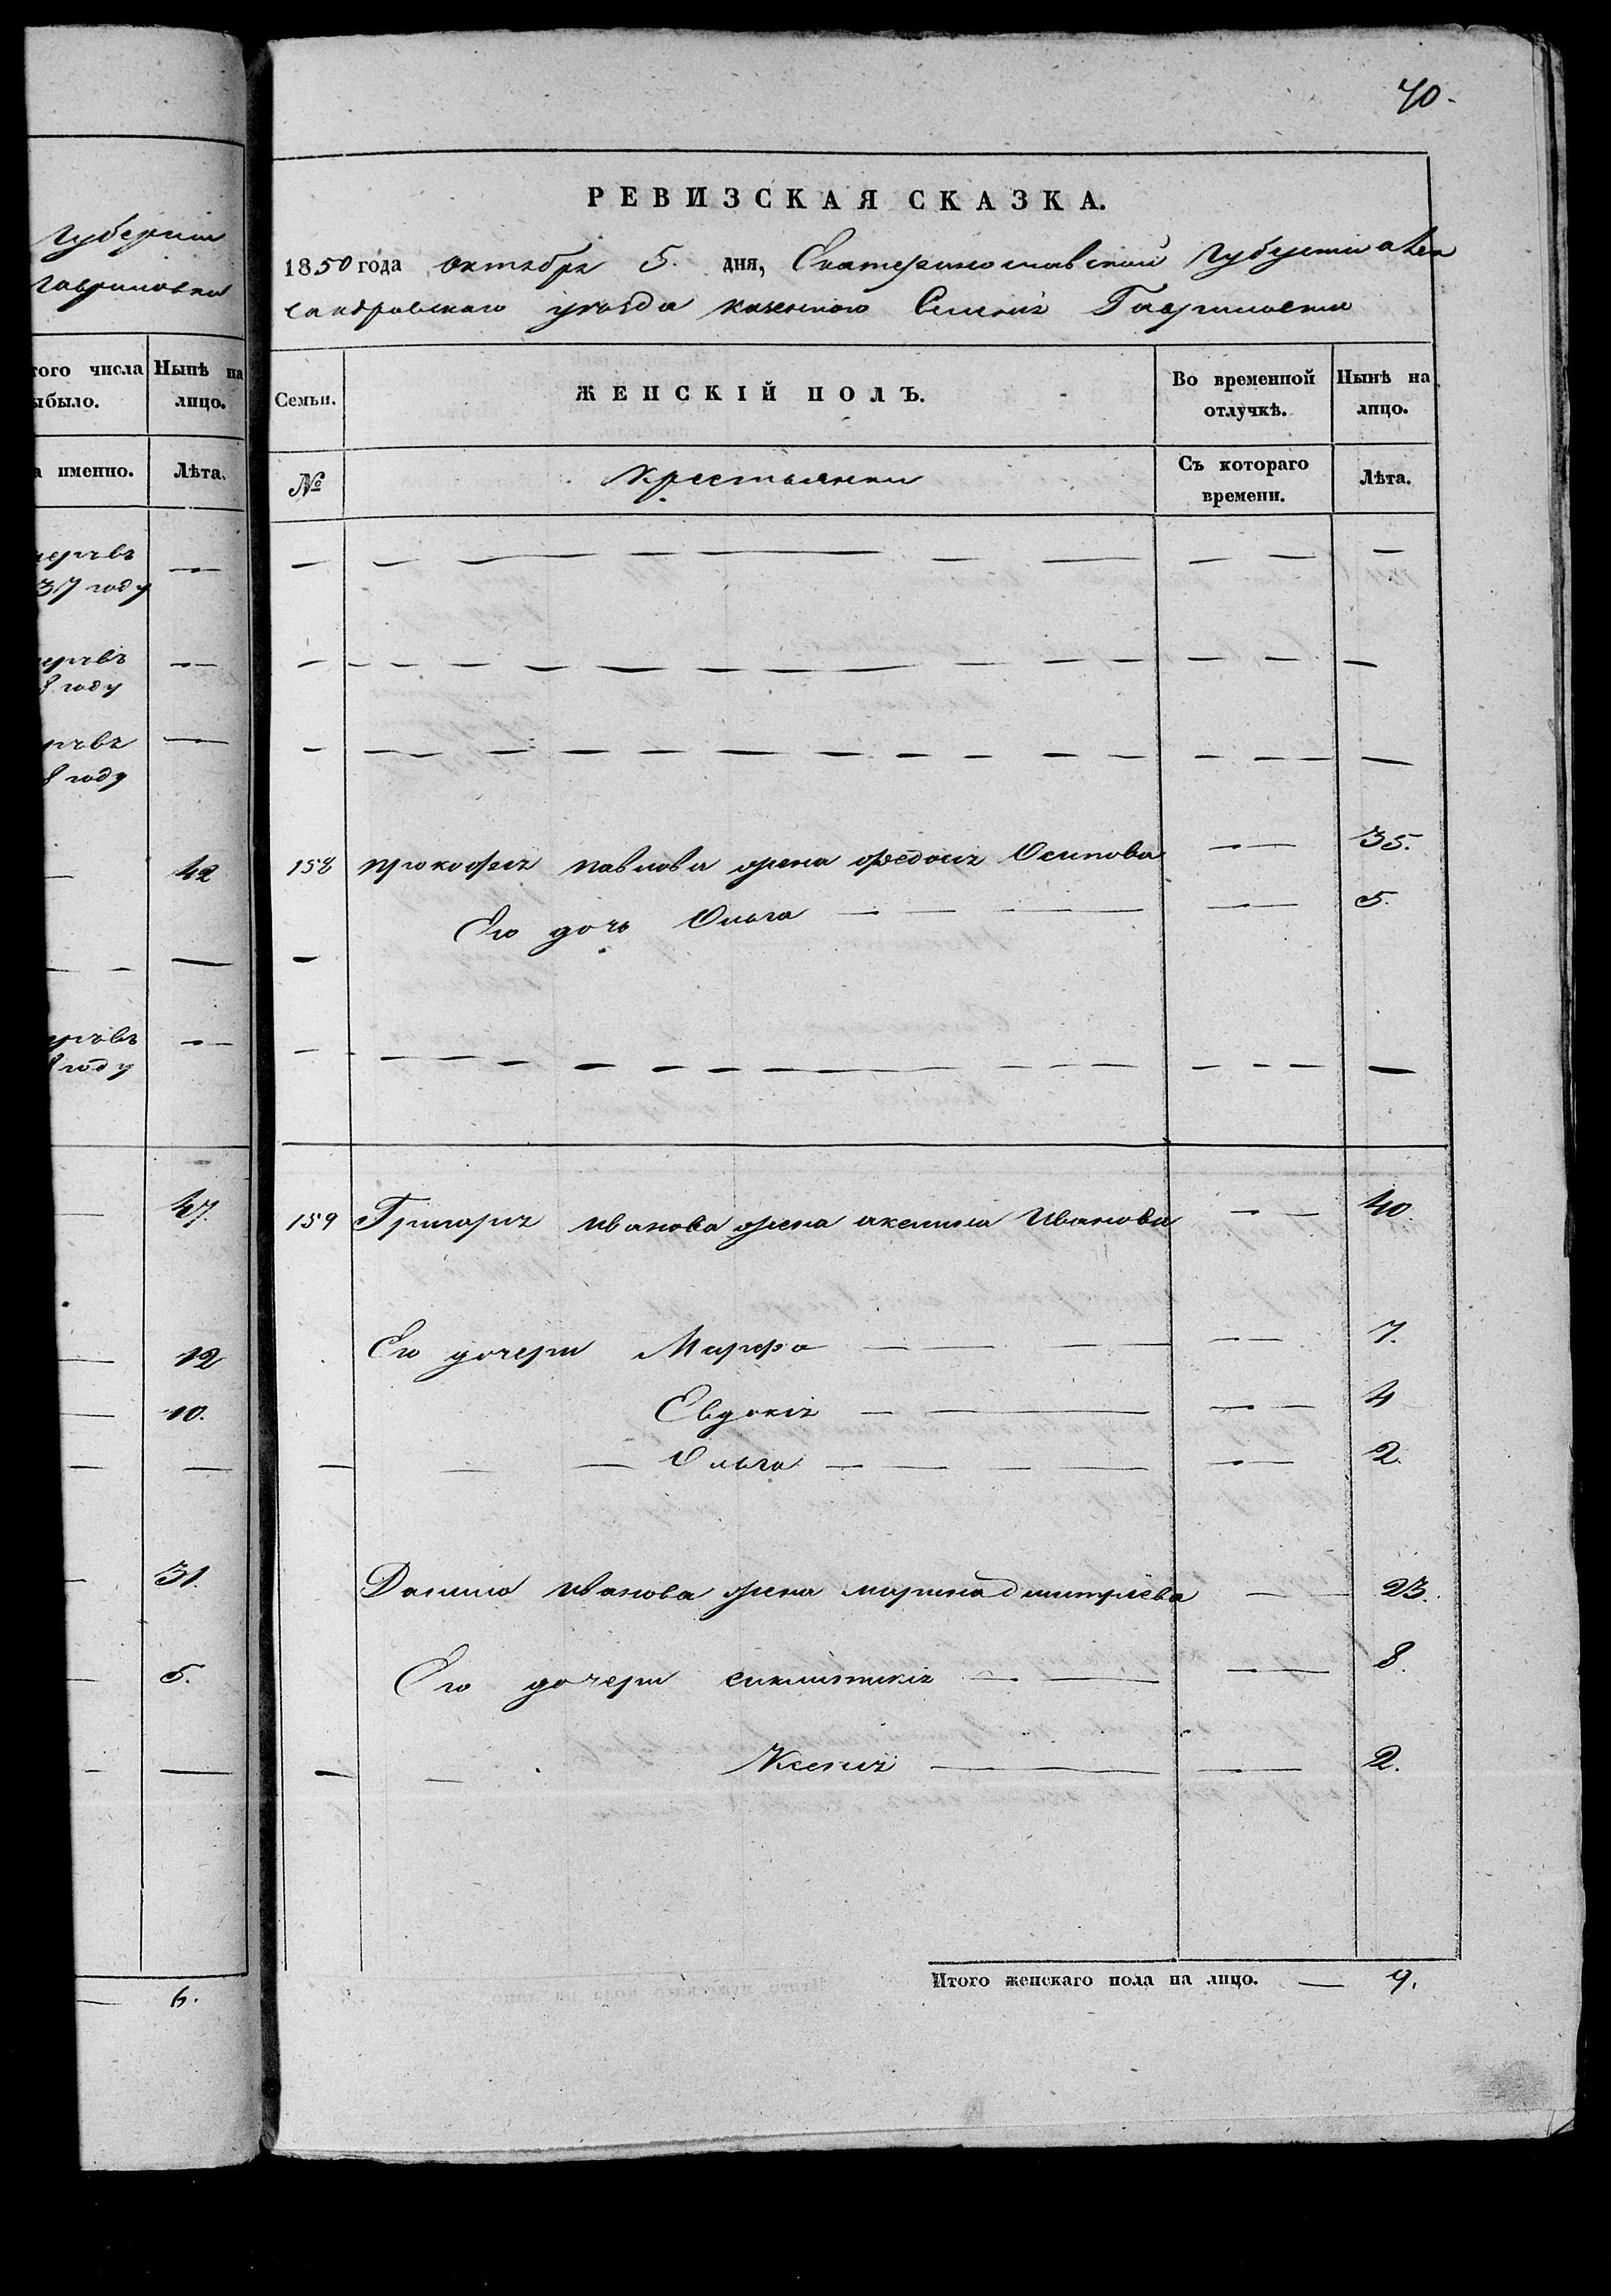 губернии
гавриловки
того числа Нынѣ на
ыбыло. лицо.
а именно. Лѣта.
37 году
8 году
8 году
42
8 году
47.
12
10.
31.
5.
6.
70.
РЕВИЗСКАЯ СКАЗКА.
1850 года октября 5. дня, Екатеринославской губернии алек
сандровскаго уѣзда казенного Селенія Гавриловки
Семьи. ЖЕНСКІЙ ПОЛЪ. Во временной отлучкѣ. Нынѣ на лицо.
№ Крестьянки Съ котораго времени. Лѣта.
158 прокофія павлова жена федосія Осипова — — 35.
Его дочь Ольга — — — — — 5.
159 Григорія иванова жена акелина Иванова — — 40.
Его дочери Марфа — — — — — 7.
Евдокія — — — — 4
— — — Ольга — — — — — — 2.
Данила иванова жена марина дмитріева — — 23.
Его дочери синклитикія — — — — 8.
— — Ксенія — — — — 2.
Итого женскаго пола на лицо. — 9.